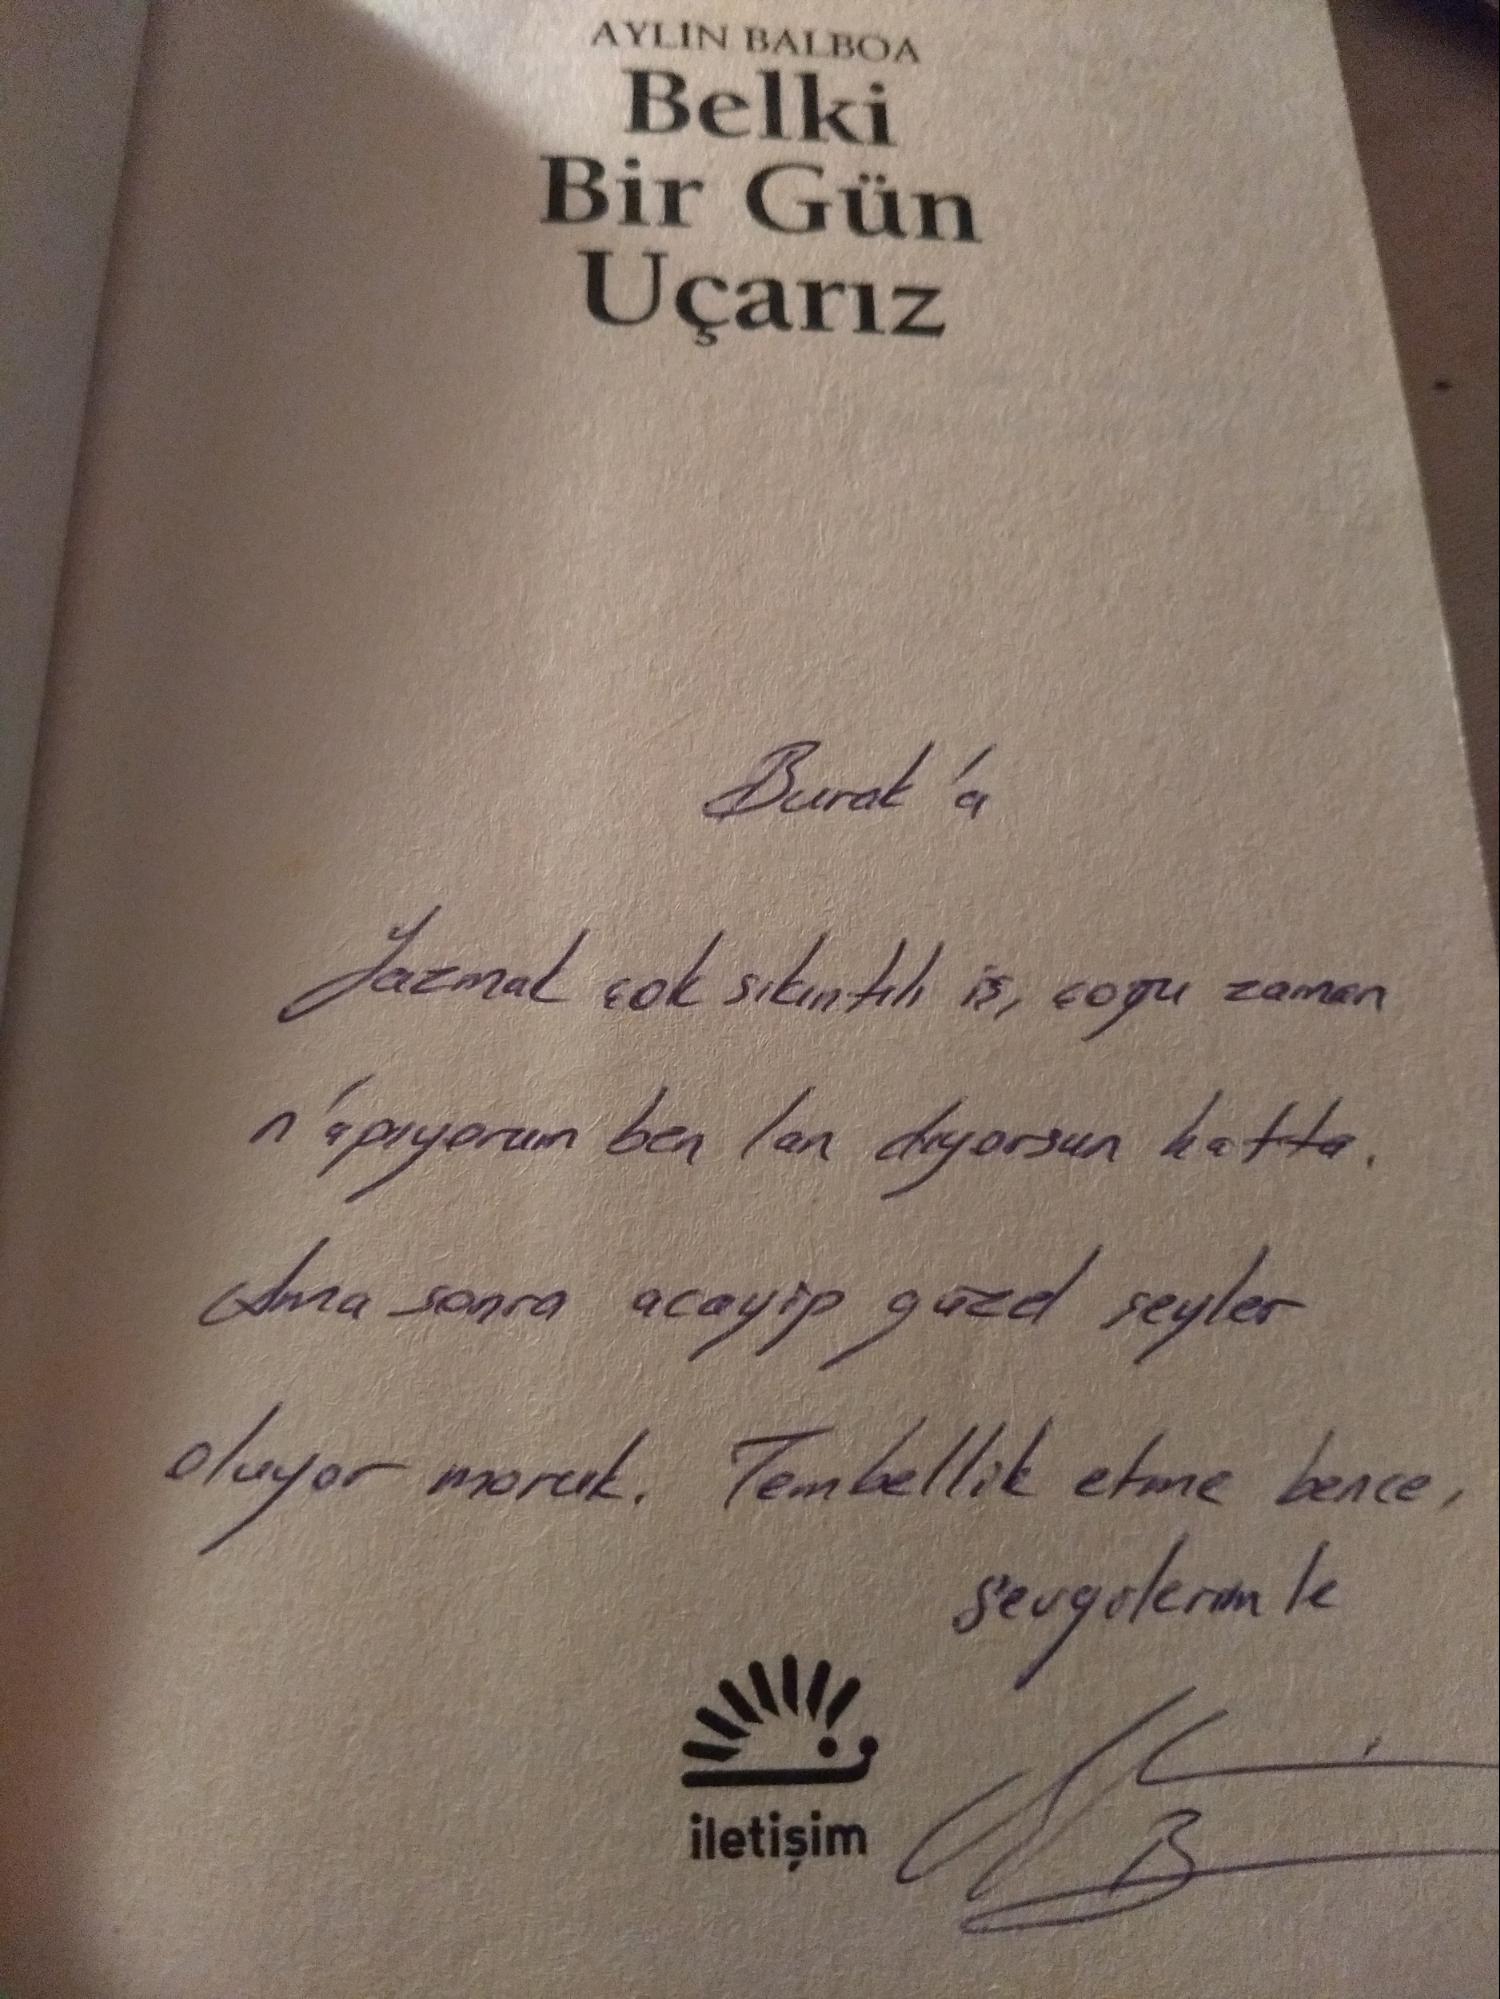 AYLİN BALBOA
Belki
Bir Gün
Uçarız
Burak'a
Yazmak çok sıkıntılı iş, çoğu zaman
n'apıyorum ben lan diyorsun hatta.
Ama sonra acayip güzel şeyler
oluyor moruk. Tembellik etme bence,
sevgilerimle
iletişim
B